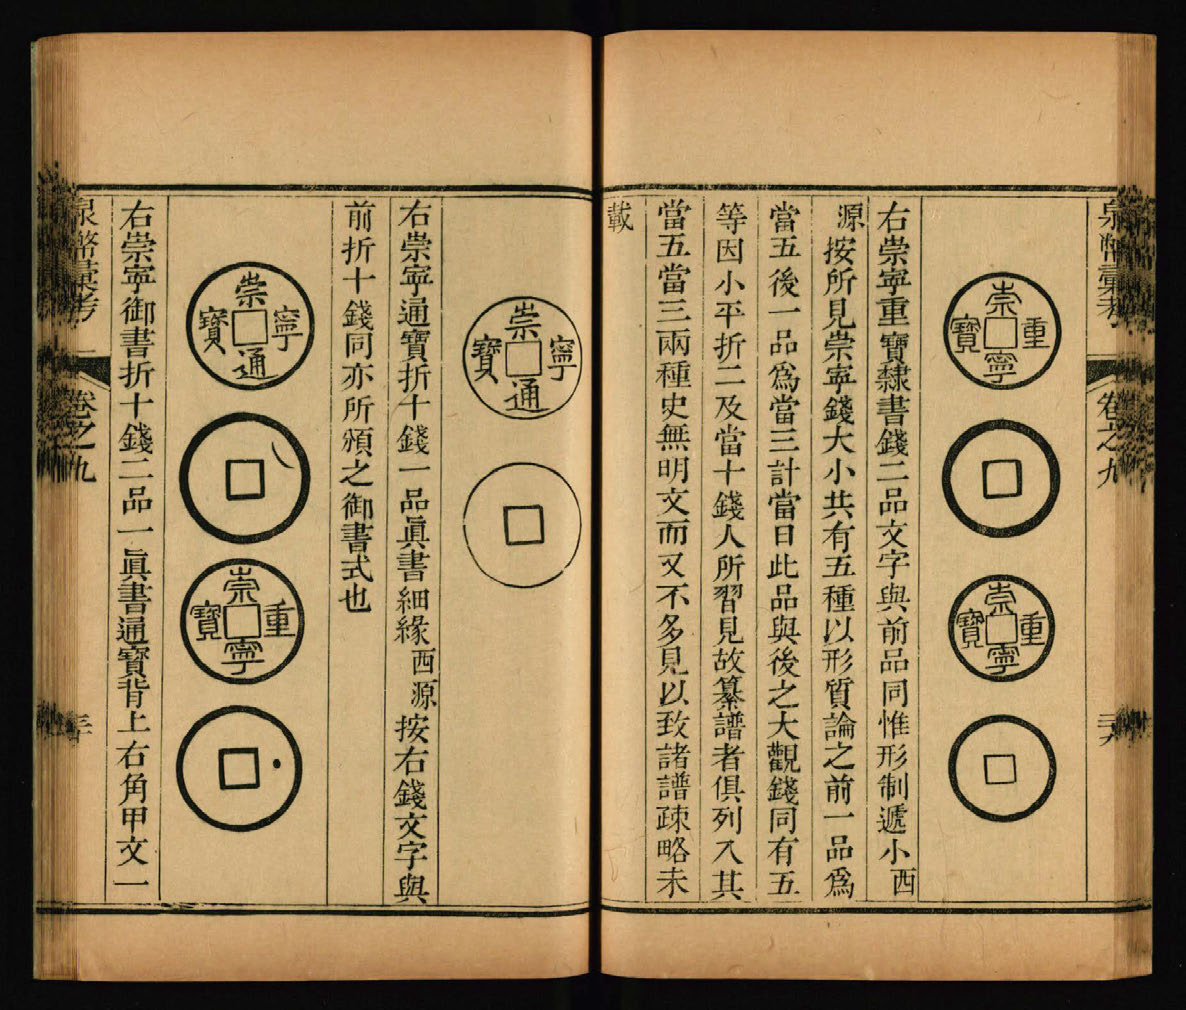 泉幣彙考 卷之九
崇重寧寶
崇重寧寶
右崇寧重寶隸書錢二品文字與前品同惟形制遞小西
源按所見崇寧錢大小共有五種以形質論之前一品爲
當五後一品爲當三計當日此品與後之大觀錢同有五
等因小平折二及當十錢人所習見故纂譜者俱列入其
當五當三兩種史無明文而又不多見以致諸譜疎略未
載
崇寧通寶
右崇寧通寶折十錢一品眞書細緣西源按右錢文字與
前折十錢同亦所頒之御書式也
崇寧通寶
崇重寧寶
右崇寧御書折十錢二品一眞書通寶背上右角甲文一
泉幣彙考 卷之九